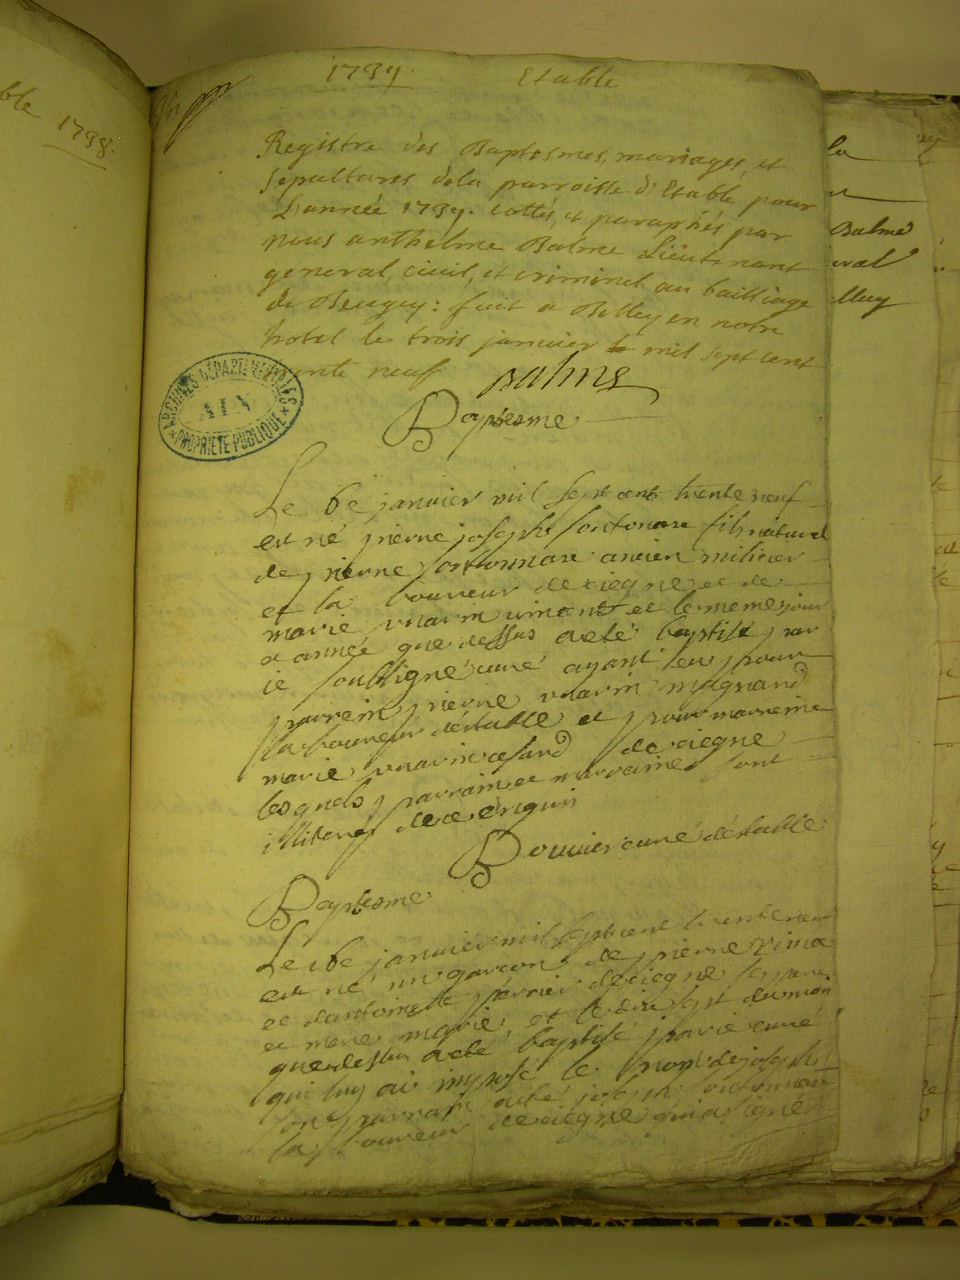 ble 1738.
1739. Etable
Registre des Baptesmes, mariages, et
Sepultures dela parroisse d'Etable pour
L'année 1739. cottés, et paraphés par
nous anthelme Balme Lieutenant
general, civil, et criminel au bailliage
de Beugey: fait a Belley en notre
hotel le trois janvier mil sept cent
trente neuf Balme
ARCHIVES DÉPARTEMENTALES
AIN
PROPRIÉTÉ PUBLIQUE
Baptesme
Le 6e janvier mil sept cent trente neuf
est né pierre joseph fils naturel
de pierre ancien milicier
et la boureur de ciegne et de
marie vuarin vincent et le meme jour
et année que dessus a eté baptisé par
je soussigné curé ayant eu pour
parrein pierre vuarin magnand
laboureur d'etable et pour marreine
marie vuarin de ciegne
lesquels parrain et marraine sont
illiterés de ce enquis
Bouvier curé d'etable
Baptesme
Le 16e janvier mil sept cent trente neuf
est né un garçon de pierre
et d'antoinette perrier de ciegne ses pere
et mere mariés, et le dix sept du mois
que dessus a eté baptisé par je curé
qui luy ai imposé le nom de joseph
son parrain a eté joseph
la boureur de ciegne qui a signé
la
Balme
eral
lley